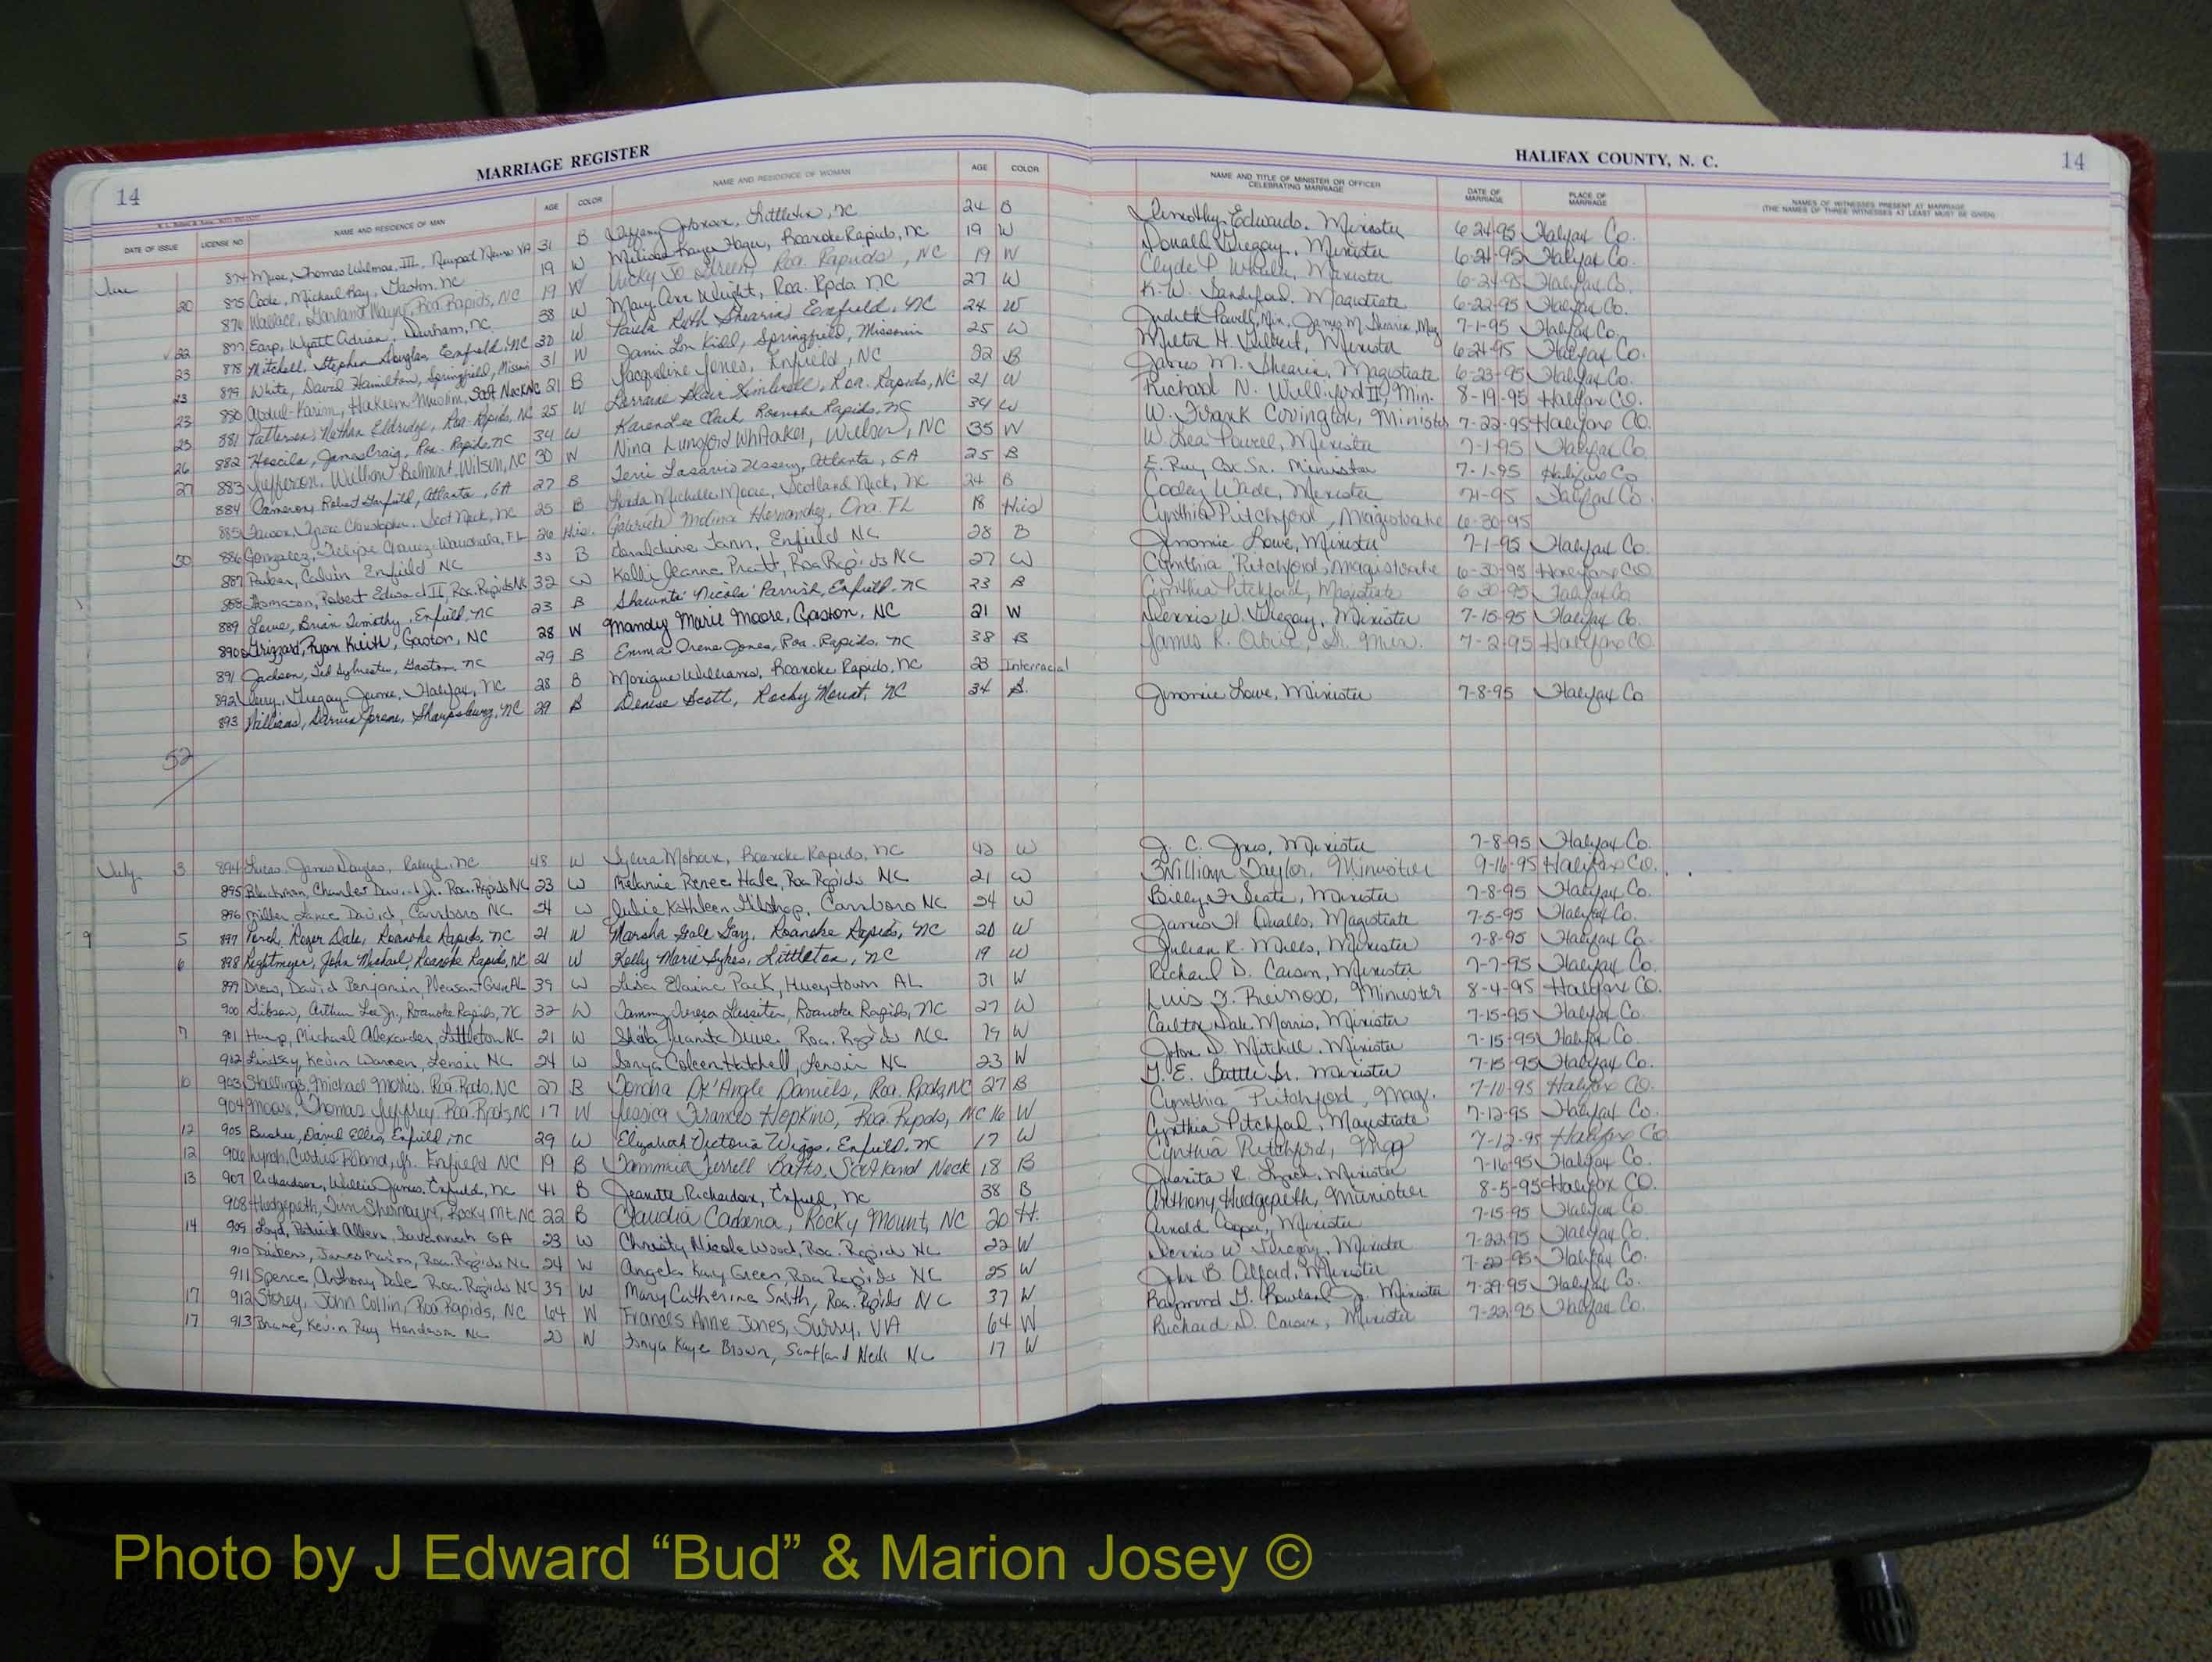 MARRIAGE REGISTER
HALIFAX COUNTY, N. C.
14
14
DATE OF ISSUE LICENSE NO NAME AND RESIDENCE OF MAN AGE COLOR NAME AND RESIDENCE OF WOMAN AGE COLOR NAME AND TITLE OF MINISTER OR OFFICER CELEBRATING MARRIAGE DATE OF MARRIAGE PLACE OF MARRIAGE NAMES OF WITNESSES PRESENT AT MARRIAGE (THE NAMES OF THREE WITNESSES AT LEAST MUST BE GIVEN)
June 874 Muse, Thomas Wilmore, III, Newport News VA 31 B Tiffany Johnson, Littleton, NC 24 B Timothy Edwards, Minister 6-24-95 Halifax Co.
20 875 Cook, Michael Ray, Gaston, NC 19 W Melissa Kaye Hager, Roanoke Rapids, NC 19 W Donald Gregory, Minister 6-24-95 Halifax Co.
876 Wallace, Garland Wayne, Roa Rapids, NC 19 W Vicky Jo Green, Roa. Rapids, NC 19 W Clyde P. Minister 6-24-95 Halifax Co.
877 Earp, Wyatt Adrian, Durham, NC 38 W Mary Ann Wright, Roa. Rpds. NC 27 W K.W. Sandiford, Magistrate 6-22-95 Halifax Co.
22 878 Mitchell, Stephen Douglas, Enfield, NC 30 W Paula Ruth Shearin, Enfield, NC 24 W Judith Powell, Min, James M. Shearin, Mag 7-1-95 Halifax Co.
23 879 White, David Hamilton, Springfield, Missouri 31 W Jami Lou Kidd, Springfield, Missouri 25 W Milton H. Gilbert, Minister 6-24-95 Halifax Co.
23 880 Abdul-Karim, Hakeem Muslim, Scot Neck NC 21 B Jacqueline Jones, Enfield, NC 22 B James M. Shearin, Magistrate 6-23-95 Halifax Co.
23 881 Patterson, Nathan Eldridge, Roa. Rapids, NC 25 W Lorraine Blair Kimbrell, Roa. Rapids, NC 21 W Richard N. Williford II, Min. 8-19-95 Halifax Co.
23 882 James Craig, Roa. Rapids, NC 34 W Karen Lee Clark, Roanoke Rapids, NC 34 W W. Frank Covington, Minister 7-22-95 Halifax CO.
26 883 Jefferson, William Belmont, Wilson, NC 30 W Nina Lungford Whitaker, Wilson, NC 35 W W. Lea Powell, Minister 7-1-95 Halifax Co.
27 884 Cameron, Robert Garfield, Atlanta, GA 27 B Terri Ussery, Atlanta, GA 25 B E. Ray Cox Sr. Minister 7-1-95 Halifax Co
885 Tyrone Christopher, Scot Neck, NC 25 B Linda Michelle Moore, Scotland Neck, NC 24 B Cooley Wade, Minister 7-1-95 Halifax Co.
886 Gonzalez, Felipe Chavez, Wauchula, FL 26 His. Gabriela Molina Hernandez, Ona FL 18 His Cynthia Pitchford, Magistrate 6-30-95
30 887 Calvin Enfield NC 33 B Geraldine Fann, Enfield NC 28 B Jimmie Lowe, Minister 7-1-95 Halifax Co.
888 Thomason, Robert Edward II, Roa. Rapids NC 32 W Kelli Jeanne Pratt, Roa Rapids NC 27 W Cynthia Pitchford, Magistrate 6-30-95 Halifax CO
889 Lowe, Brian Timothy, Enfield, NC 23 B Shaunta' Nicole' Parrish, Enfield, NC 23 B Cynthia Pitchford, Magistrate 6 30-95 Halifax Co
890 Grizzard, Ryan Keith, Gaston, NC 28 W Mandy Marie Moore, Gaston, NC 21 W Dennis W. Gregory, Minister 7-15-95 Halifax Co.
891 Jackson, Ted Sylvester, Gaston, NC 29 B Emma Orene Jones, Roa. Rapids, NC 38 B James R. Sr. Min. 7-2-95 Halifax CO
892 Gregory Jerome, Halifax, NC 28 B Monique Williams, Roanoke Rapids, NC 23 Interracial
893 Williams, Darvin Jerome, Sharpsburg, NC 29 B Denise Scott, Rocky Mount, NC 34 B. Jimmie Lowe, Minister 7-8-95 Halifax Co
52
July 3 894 Lucas, James Douglas, Raleigh, NC 48 W Mohorn, Roanoke Rapids, NC 42 W J. C. Jones, Minister 7-8-95 Halifax Co.
895 Blackmon, Charles David Jr. Roa. Rapids NC 23 W Melanie Renee Hale, Roa Rapids NC 21 W William Taylor, Minister 9-16-95 Halifax CO.
896 Miller, Lance David, Carrboro NC 24 W Julie Kathleen Gilstrap, Carrboro NC 24 W Billy F. Seate, Minister 7-8-95 Halifax Co.
9 5 897 Roger Dale, Roanoke Rapids, NC 21 W Marsha Gale Gay, Roanoke Rapids, NC 20 W James H. Qualls, Magistrate 7-5-95 Halifax Co.
6 898 Rightmyer, John Michael, Roanoke Rapids, NC 21 W Kelly Marie Sykes, Littleton, NC 19 W Julian R. Mills, Minister 7-8-95 Halifax Co.
899 Drew, David Benjamin, Pleasant Grove AL 39 W Lisa Elaine Pack, Hueytown AL 31 W Richard D. Carson, Minister 7-7-95 Halifax Co.
900 Gibson, Arthur Lee Jr., Roanoke Rapids, NC 32 W Tammy Teresa Lassiter, Roanoke Rapids, NC 27 W Luis F. Reinoso, Minister 8-4-95 Halifax CO.
7 901 Michael Alexander, Littleton NC 21 W Sheila Juanita Roa. Rapids NC 19 W Carlton Dale Morris, Minister 7-15-95 Halifax Co.
902 Lindsay, Kevin Warren, Lenoir NC 24 W Sonya Coleen Hatchell, Lenoir NC 23 W John D. Mitchell, Minister 7-15-95 Halifax Co.
10 903 Stallings, Michael Morris, Roa Rpds, NC 27 B Tondra De'Angle Daniels, Roa. Rpds, NC 27 B G. E. Battle Sr. Minister 7-15-95 Halifax Co.
904 Moore, Thomas Jeffrey, Roa. Rpds, NC 17 W Jessica Frances Hopkins, Roa. Rpds, NC 16 W Cynthia Pitchford, Mag. 7-10-95 Halifax Co.
12 905 David Ellis, Enfield, NC 29 W Elizabeth Victoria Wiggs, Enfield, NC 17 W Cynthia Pitchford, Magistrate 7-12-95 Halifax Co.
12 906 Lynch, Curtis Roland, Jr. Enfield NC 19 B Tammie Terrell Batts, Scotland Neck 18 B Cynthia Pitchford, Mag 7-12-95 Halifax Co
13 907 Richardson, Willie James, Enfield, NC 41 B Jeanette Richardson, Enfield, NC 38 B Juanita R. Lynch, Minister 7-16-95 Halifax Co.
908 Hedgepeth, Tim Sherman, Rocky Mt. NC 22 B Claudia Cadena, Rocky Mount, NC 20 H. Anthony Hedgepeth, Minister 8-5-95 Halifax CO.
14 909 Loyd, Patrick Allen, Savannah GA 23 W Christy Nicole Wood, Roa. Rapids NC 22 W Arnold Cooper, Minister 7-15-95 Halifax Co
910 Dickens, James Marion, Roa. Rapids NC 24 W Angela Kay Green, Roa Rapids NC 25 W Dennis W. Gregory, Minister 7-22-95 Halifax Co.
911 Spence, Anthony Dale Roa. Rapids NC 39 W Mary Catherine Smith, Roa. Rapids NC 37 W John B. Alford, Minister 7-22-95 Halifax Co.
17 912 Storey, John Collin, Roa Rapids, NC 64 W Frances Anne Jones, Surry, VA 64 W Raymond G. Rowland Jr. Minister 7-29-95 Halifax Co.
17 913 Kevin Ray Henderson NC 20 W Tonya Kaye Brown, Scotland Neck NC 17 W Richard D. Carson, Minister 7-22-95 Halifax Co.
Photo by J Edward “Bud” & Marion Josey ©